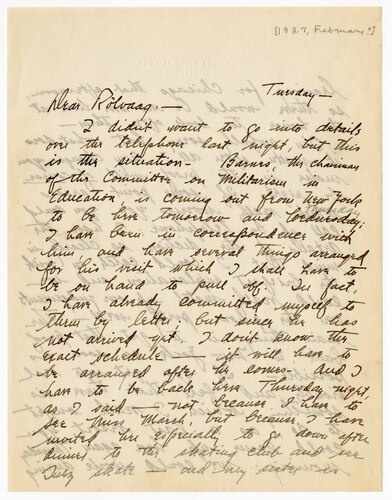 [1927, February?]
Tuesday—
Dear Rölvaag:—
I didn't want to go into details
over the telephone last night, but this
is the situation— Barnes, the chairman
of the Committee on Militarism in
Education is coming out from New York
to be here tomorrow and
I have been in correspondence with
him, and have several things arranged
for his visit which I shall have to
be on hand to pull off. In fact,
I have already committed myself to
them by letter, but since he has
not arrived yet, I don't know the
exact schedule — it will have to
be arranged after he comes— And I
have to be back here Thursday night,
as I said — not because I have to
see Miss Marsh, but because I have
invited her especially to go down after
dinner to the skating club and see
Suzy skate — and my sister is